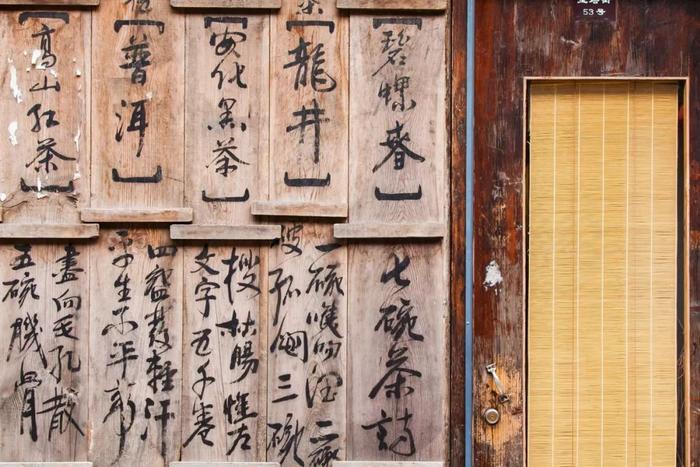 【碧螺春】
【龍井】
【安化黑茶】
【普洱】
【高山红茶】
七碗茶詩
一碗喉吻潤二碗
破孤悶三碗
搜枯腸惟有
文字五千卷
四碗發輕汗
平生不平事
盡向毛孔散
五碗肌骨
53号